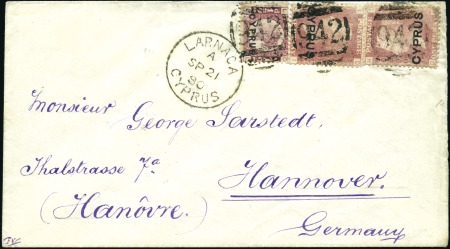 CYPRUS
CYPRUS
CYPRUS
942
942
LARNACA
A
SP 21
80
CYPRUS
Monsieur
George Sarstedt.
Thalstrasse 7a
Hannover.
(Hanôvre.)
Germany